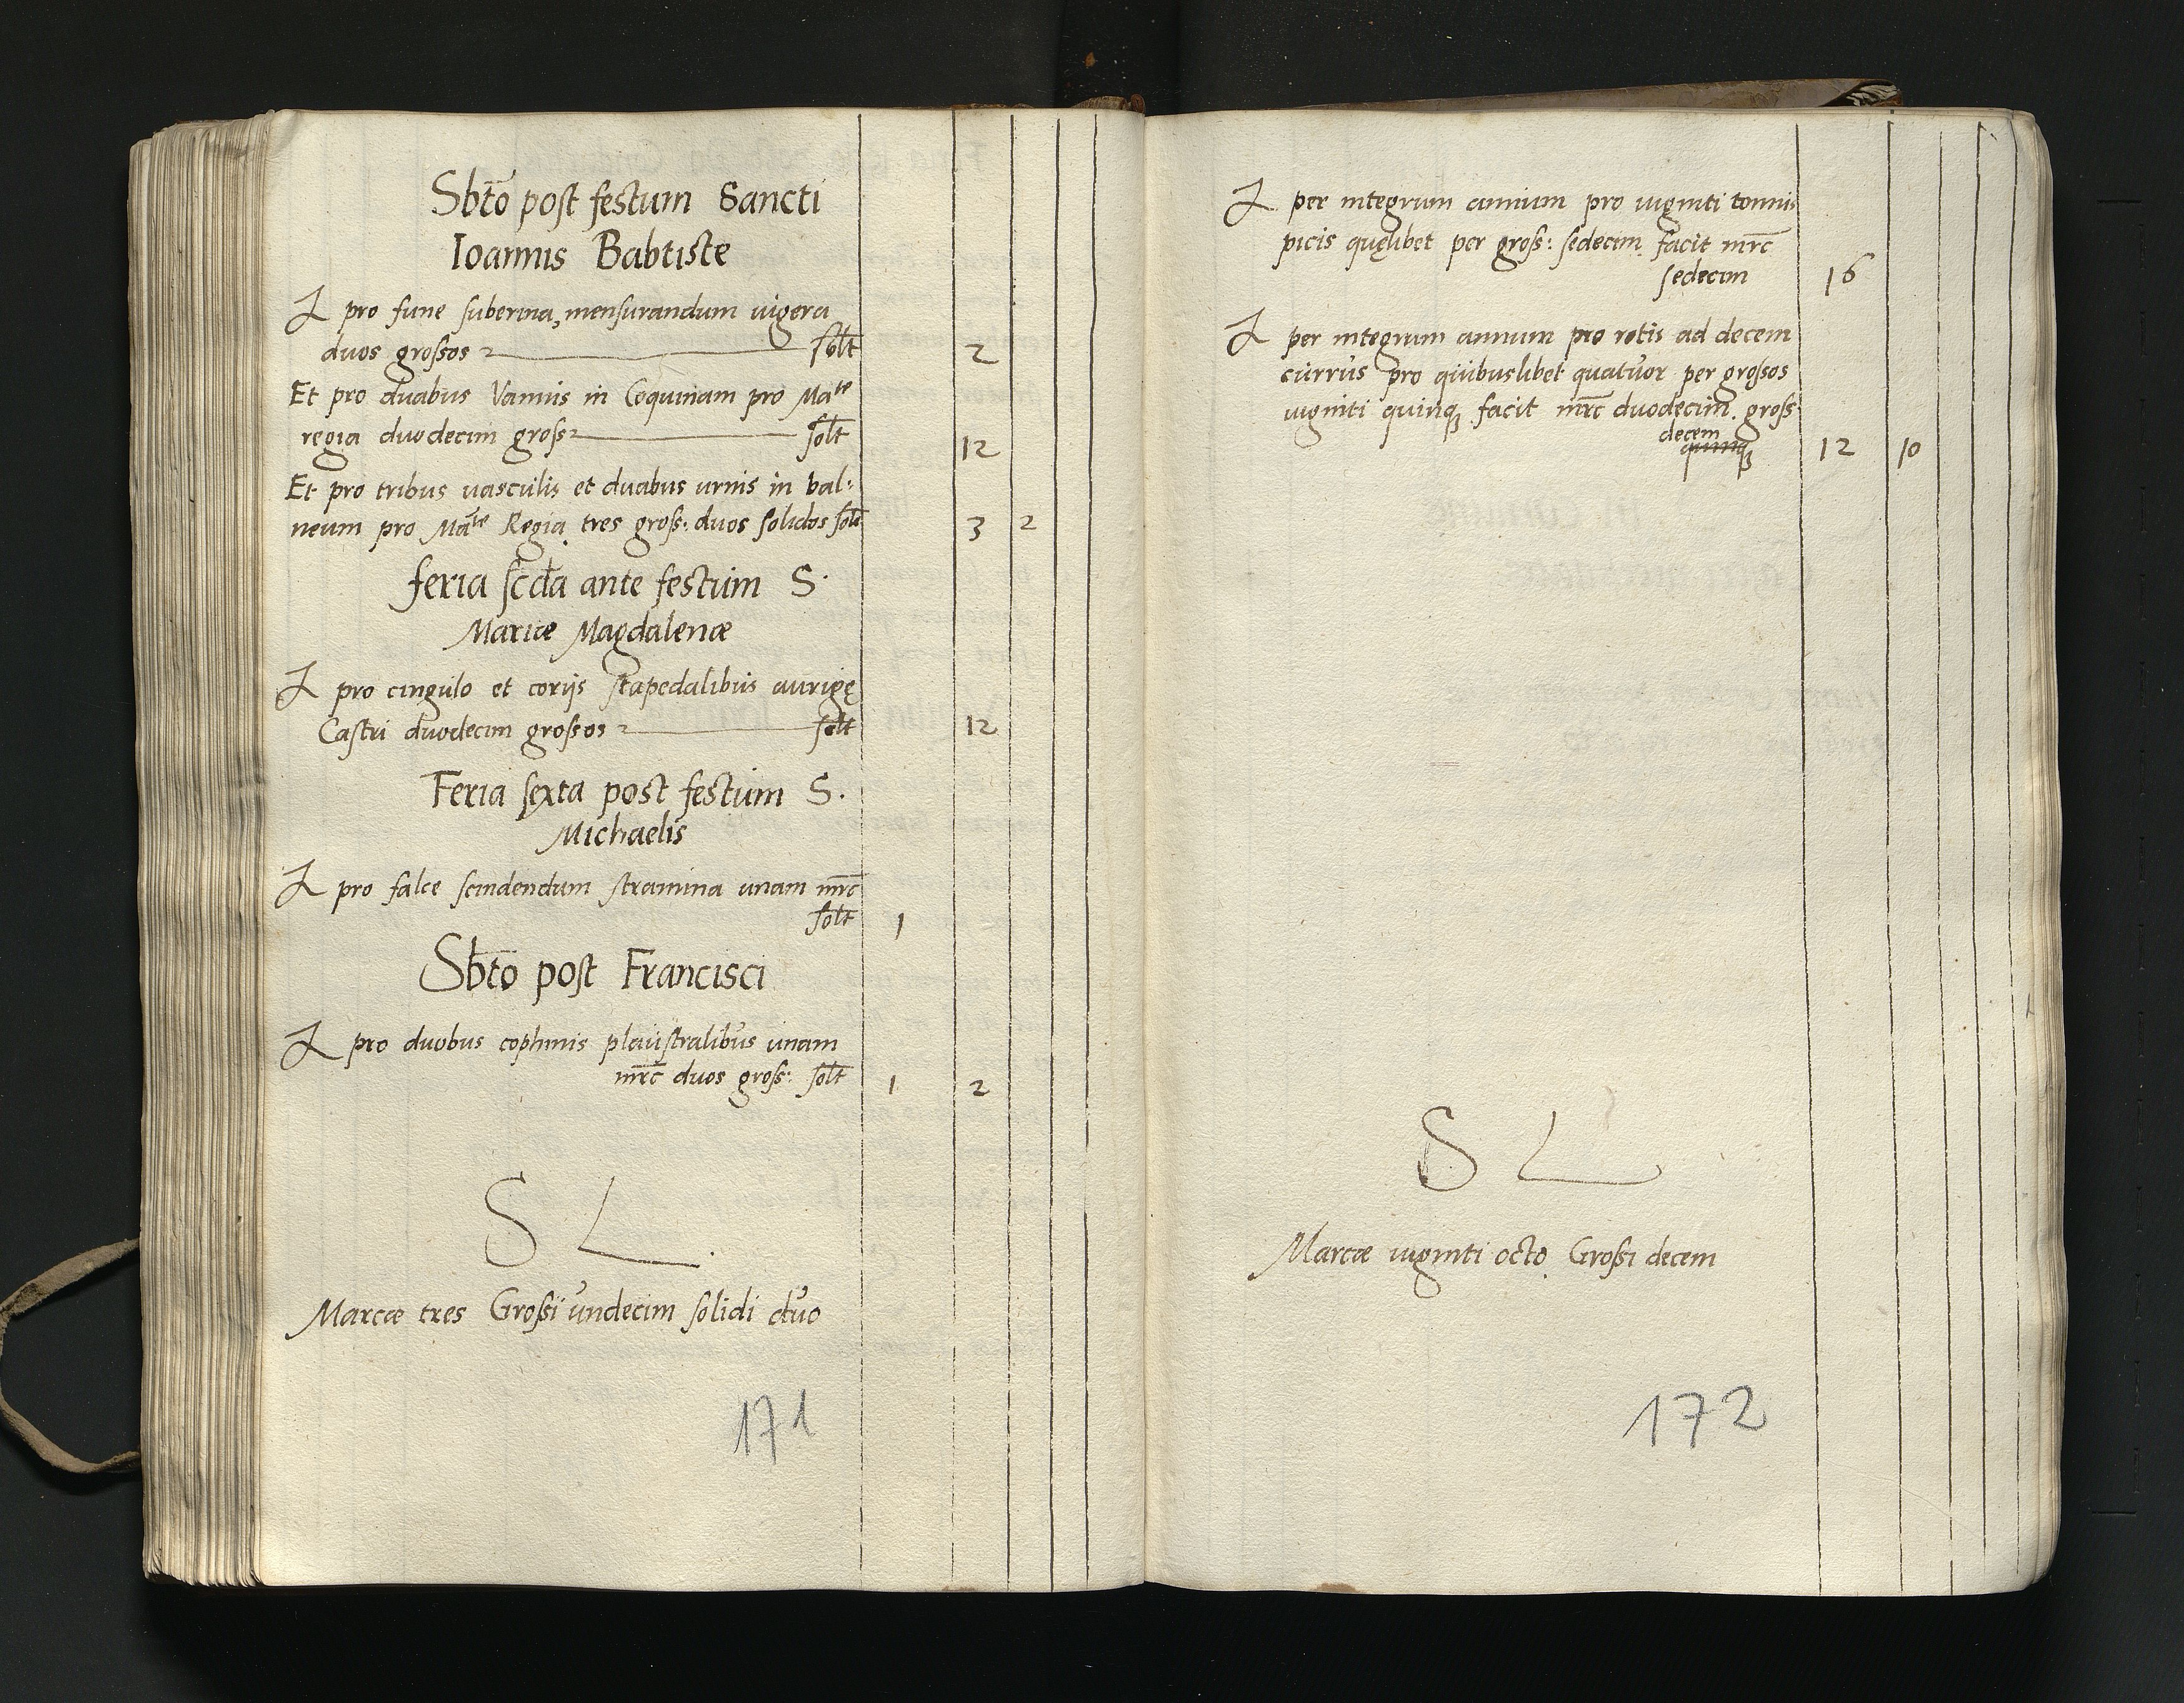 Sbto post festum Sancti
Ioannis Babtiste
It pro fune suberina, mensurandum iugera
duos grossos solt 2
Et pro duabus Vannis in Coquinam pro Mate
regia duodecim gross solt 12
Et pro tribus uasculis et duabus urnis in bal:
neum pro Mate Regia tres gross: duos solidos solt 3 2
feria scda ante festum S.
Mariæ Magdalenæ
It pro cingulo et corijs stapedalibus aurigę
Castri duodecim grossos solt 12
Feria sexta post festum S.
Michaelis
It pro falce scindendum stramina unam mrc
solt 1
Sbto post Francisci
It pro duobus cophinis plaustralibus unam
mrc duos gross: solt 1 2
S L.
Marcæ tres Grossi undecim solidi duo
171
It per integrum annum pro uiginti tonnis
picis quęlibet per gross: sedecim facit mrc
sedecim 16
It per integrum annum pro rotis ad decem
currus pro quibuslibet quatuor per grossos
uiginti quinq facit mrc duodecim gross
decem
quinq 12 10
S L
Marcæ uiginti octo Grossi decem
172